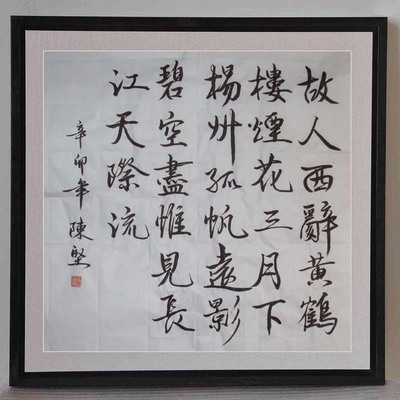 故人西辭黃鶴
樓煙花三月下
楊州孤帆遠影
碧空盡惟見長
江天際流
辛卯年 陳堅